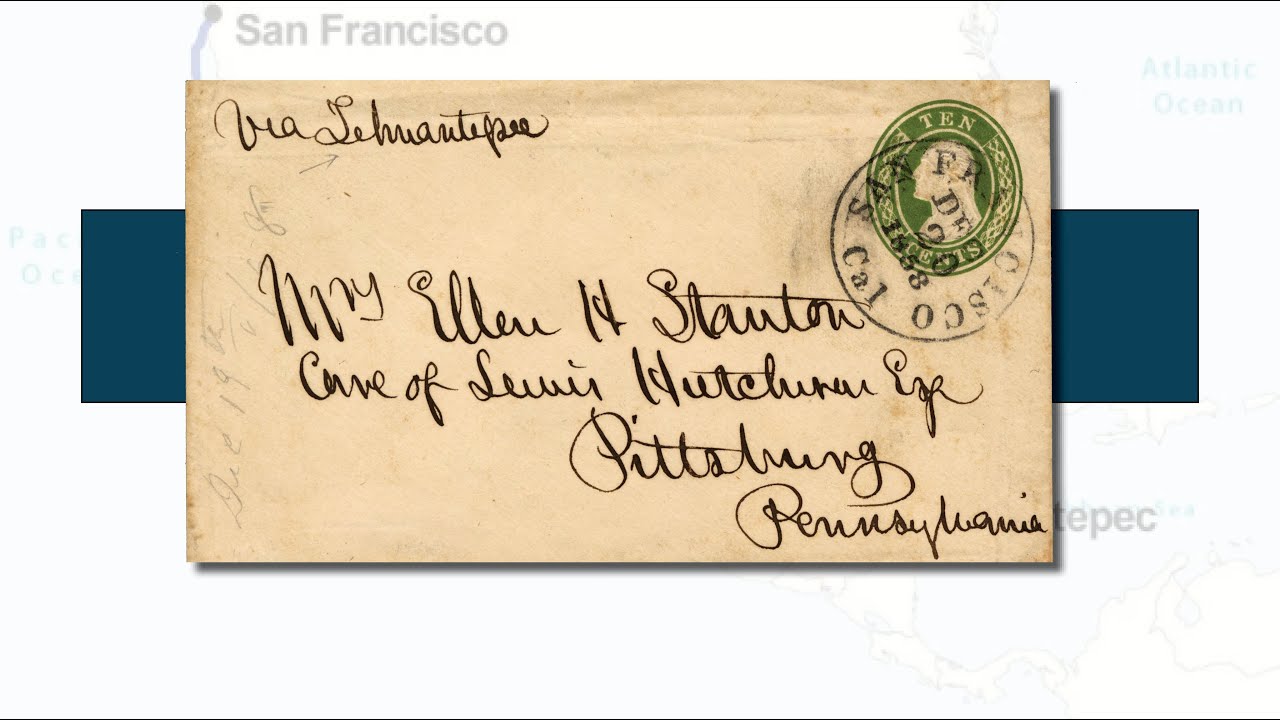 San Francisco
Atlantic
Ocean
Via Tehuantepec
TEN
CENTS
SAN FRANCISCO
DE
20
1858
Cal
Pac
Oce
Mrs Ellen H Stanton
Care of Lewis Hutchison Esq
Pittsburg
Pennsylvania
tepec
Sea
Dec 19